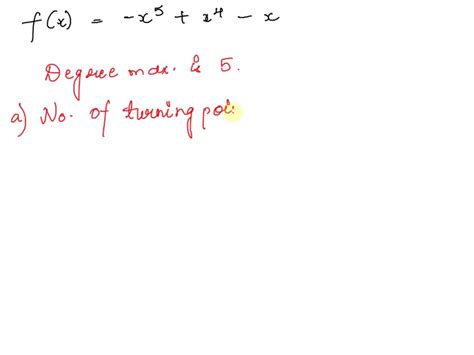 f(x) = -x⁵ + x⁴ - x
Degree max. is 5.
a) No. of turning poi